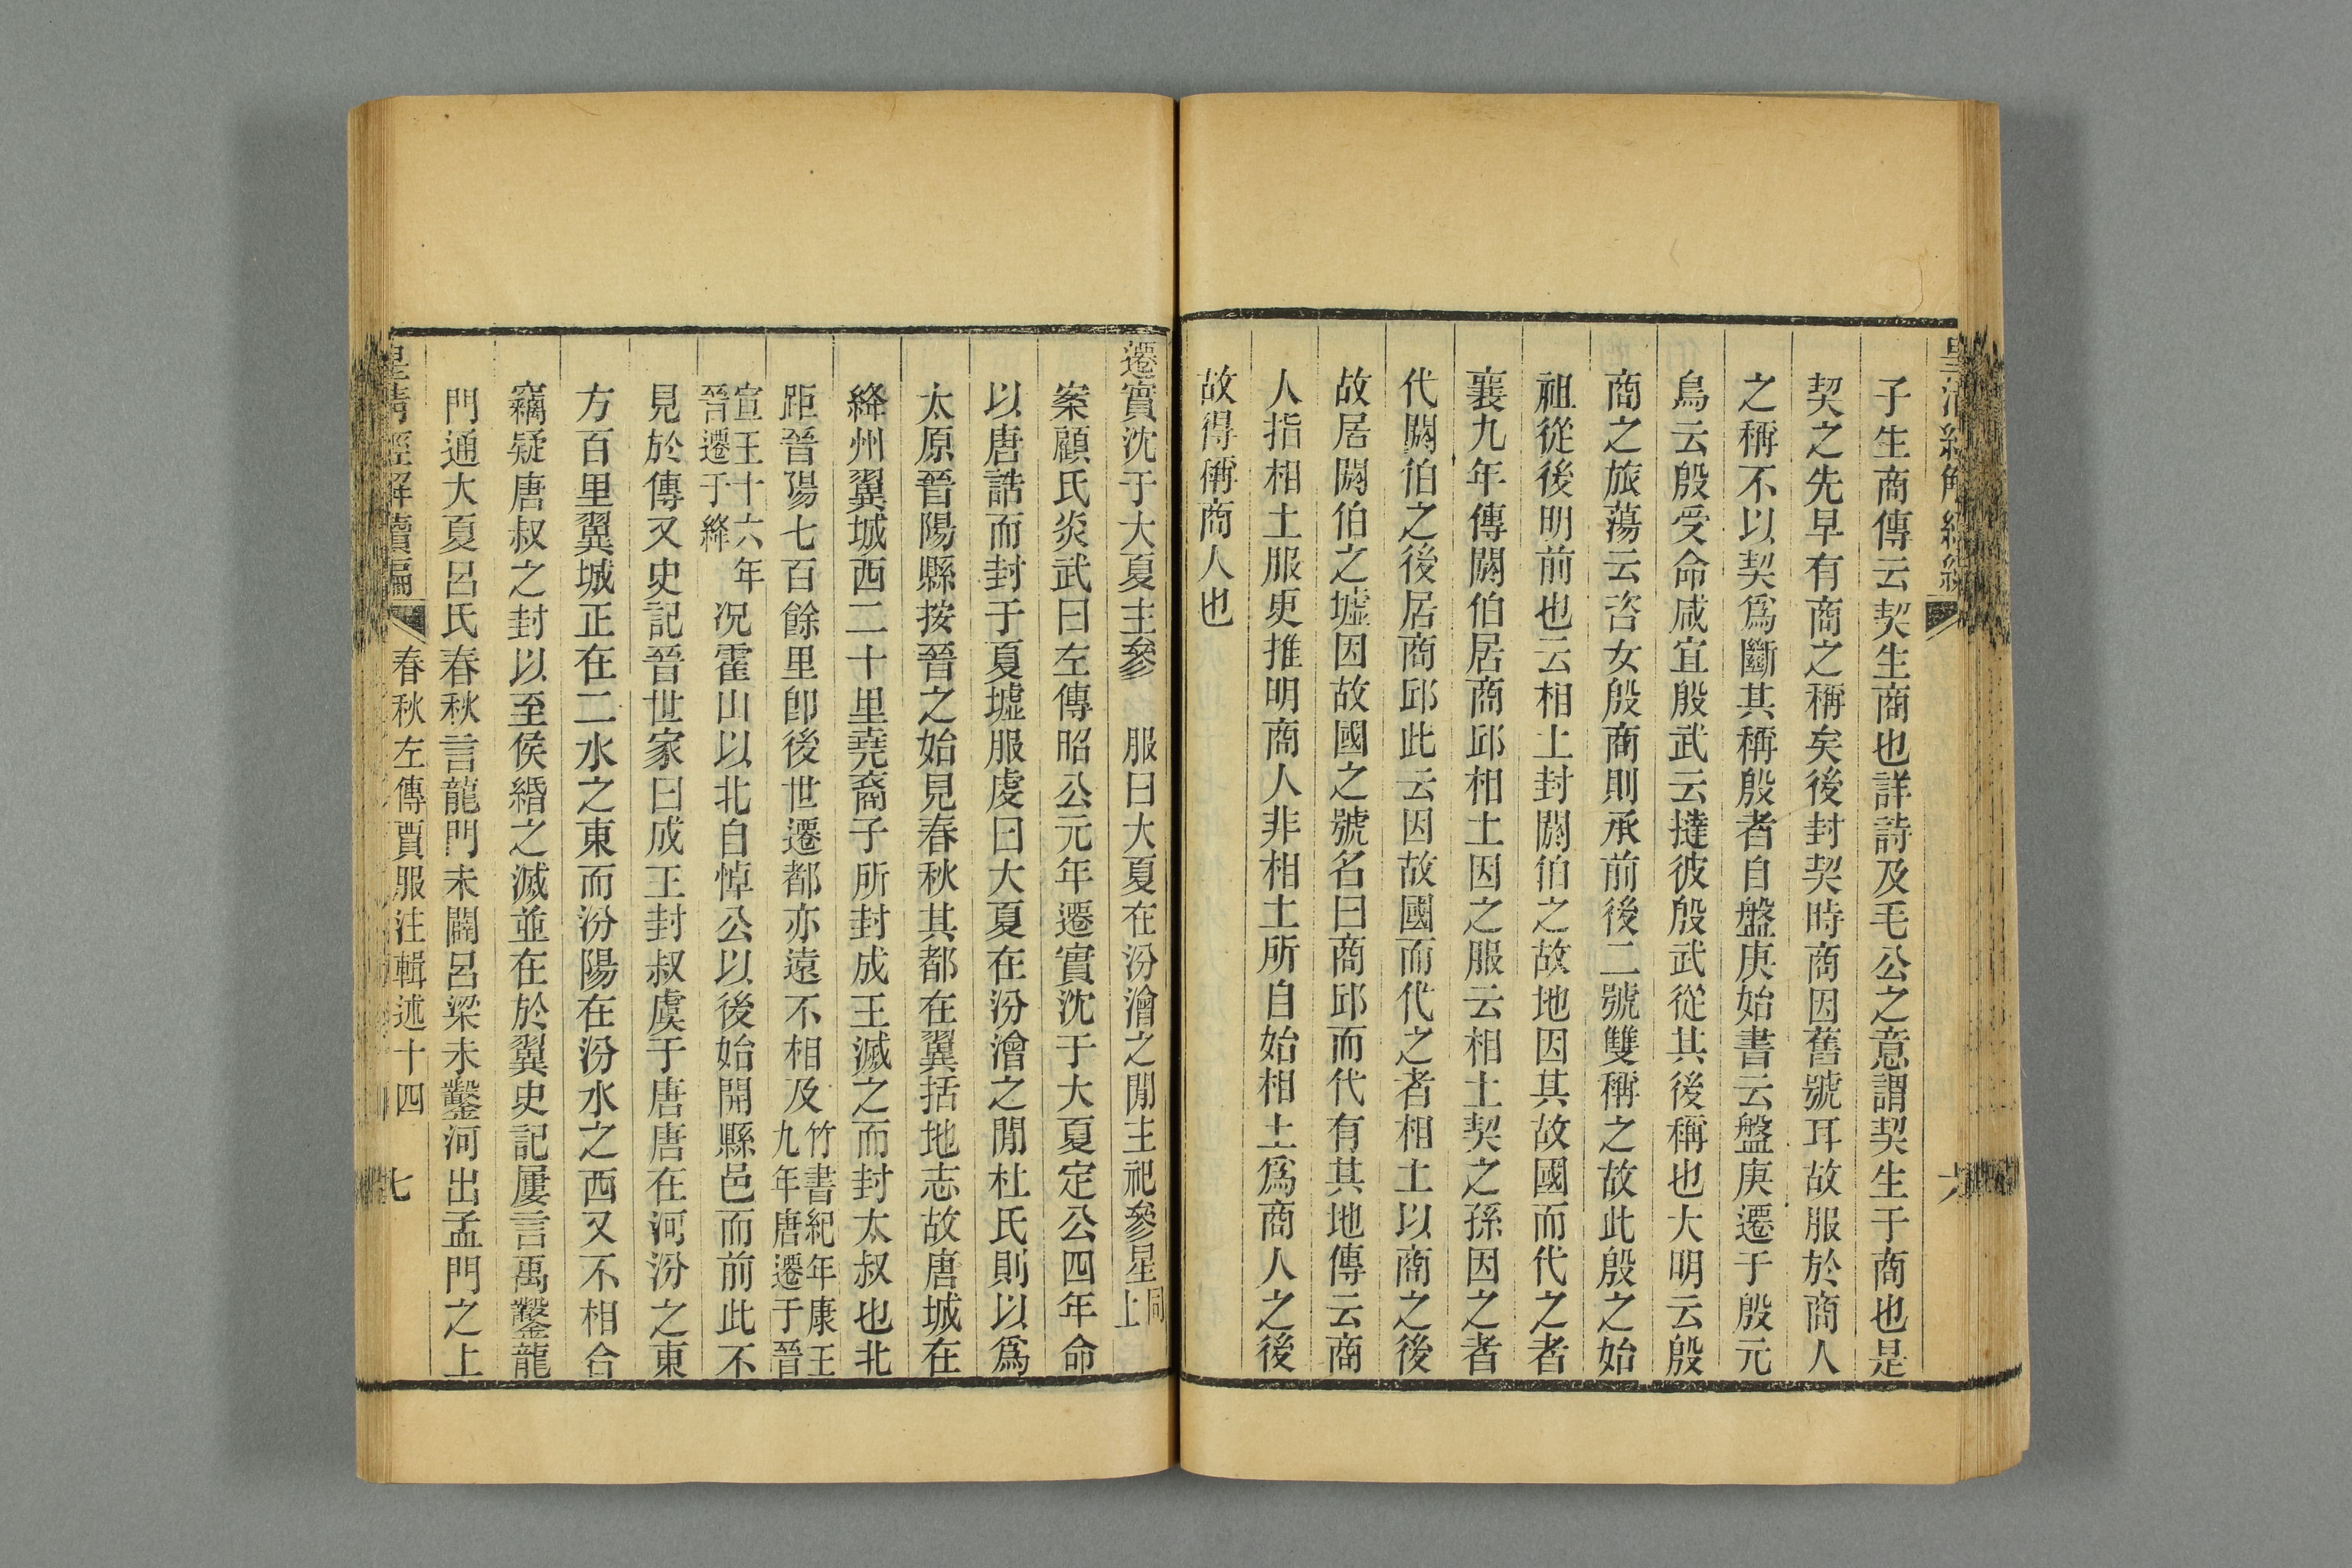 子生商傳云契生商也詳詩及毛公之意謂契生于商也是
契之先早有商之稱矣後封契時商因舊號耳故服於商人
之稱不以契爲斷其稱殷者自盤庚始書云盤庚遷于殷元
鳥云殷受命咸宜殷武云撻彼殷武從其後稱也大明云殷
商之旅蕩云咨女殷商則承前後二號雙稱之故此殷之始
祖從後明前也云相土封閼伯之故地因其故國而代之者
襄九年傳閼伯居商邱相土因之服云相土契之孫因之者
代閼伯之後居商邱此云因故國而代之者相土以商之後
故居閼伯之墟因故國之號名曰商邱而代有其地傳云商
人指相土服更推明商人非相土所自始相土爲商人之後
故得稱商人也
遷實沈于大夏主參 服曰大夏在汾澮之閒主祀參星同上
案顧氏炎武曰左傳昭公元年遷實沈于大夏定公四年命
以唐誥而封于夏墟服虔曰大夏在汾澮之閒杜氏則以爲
太原晉陽縣按晉之始見春秋其都在翼括地志故唐城在
絳州翼城西二十里堯裔子所封成王滅之而封太叔也北
距晉陽七百餘里卽後世遷都亦遠不相及竹書紀年康王九年唐遷于晉
宣王十六年晉遷于絳况霍山以北自悼公以後始開縣邑而前此不
見於傳又史記晉世家曰成王封叔虞于唐唐在河汾之東
方百里翼城正在二水之東而汾陽在汾水之西又不相合
竊疑唐叔之封以至侯緡之滅並在於翼史記屢言禹鑿龍
門通大夏呂氏春秋言龍門未闢呂梁未鑿河出孟門之上
皇清經解續編 春秋左傳賈服注輯述十四 七